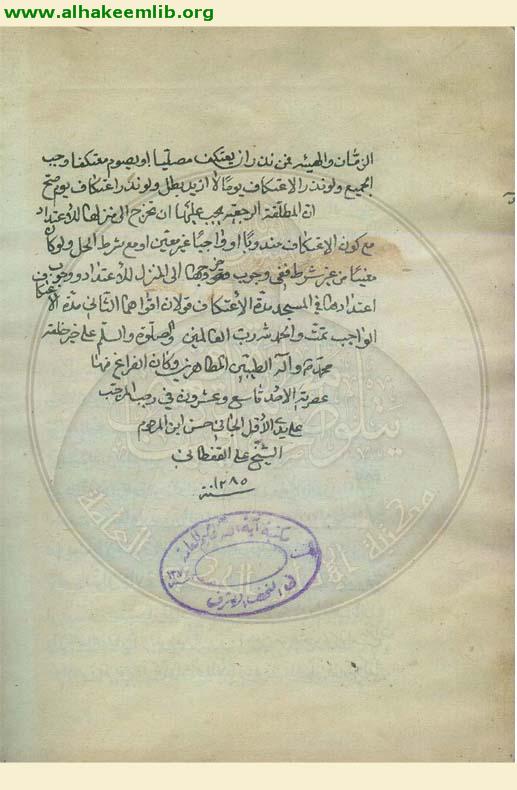 www.alhakeemlib.org
الزمان والهيئة فمن نذر ان يعتكف مصليا او يصوم معتكفا وجب
الجميع ولو نذر الاعتكاف يوما لا ازيد بطل ولو نذر اعتكاف يوم صح
ان المطلقة الرجعية يجب عليها ان تخرج الى منزلها للاعتداد
مع كون الاعتكاف مندوبا او واجبا غير معين او مع شرط الحل ولو كان
معينا من غير شرط ففي وجوب خروجها الى المنزل للاعتداد و وجوب
اعتدادها في المسجد مدة الاعتكاف قولان اقواهما الثاني مدة الاعتكاف
الواجب تمت والحمد لله رب العالمين والصلوة والسلم على خير خلقه
محمد وآله الطيبين الطاهرين وكان الفراغ منها
عصرية الاحد تاسع وعشرون في رجب المرجب
على يدي الاقل الجاني حسن ابن المرحوم
الشيخ علي القفطاني
سنة ١٢٨٥
مكتبة آية الله الحكيم العامة
النجف الاشرف